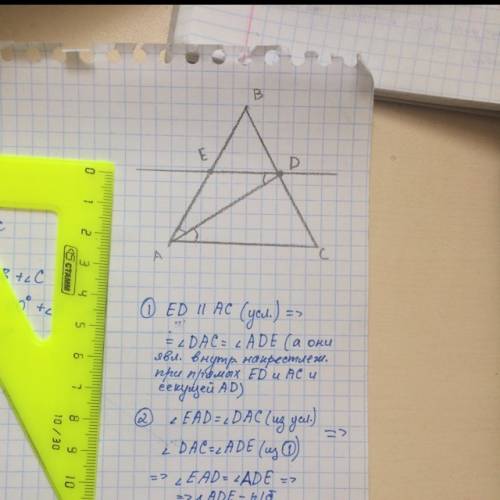 B
E
D
A
C
0
1
2
3
4
5
6
7
8
9
10
СТАММ
10/30
C
+∠C
① ED || AC (усл.) =>
= ∠DAC = ∠ADE (а они
явл. внутр. накрестлеж.
при прямых ED и AC и
секущей AD)
② ∠EAD = ∠DAC (из усл.)
=>
∠DAC = ∠ADE (из ①)
=> ∠EAD = ∠ADE =>
=> ∠ADE - р/б